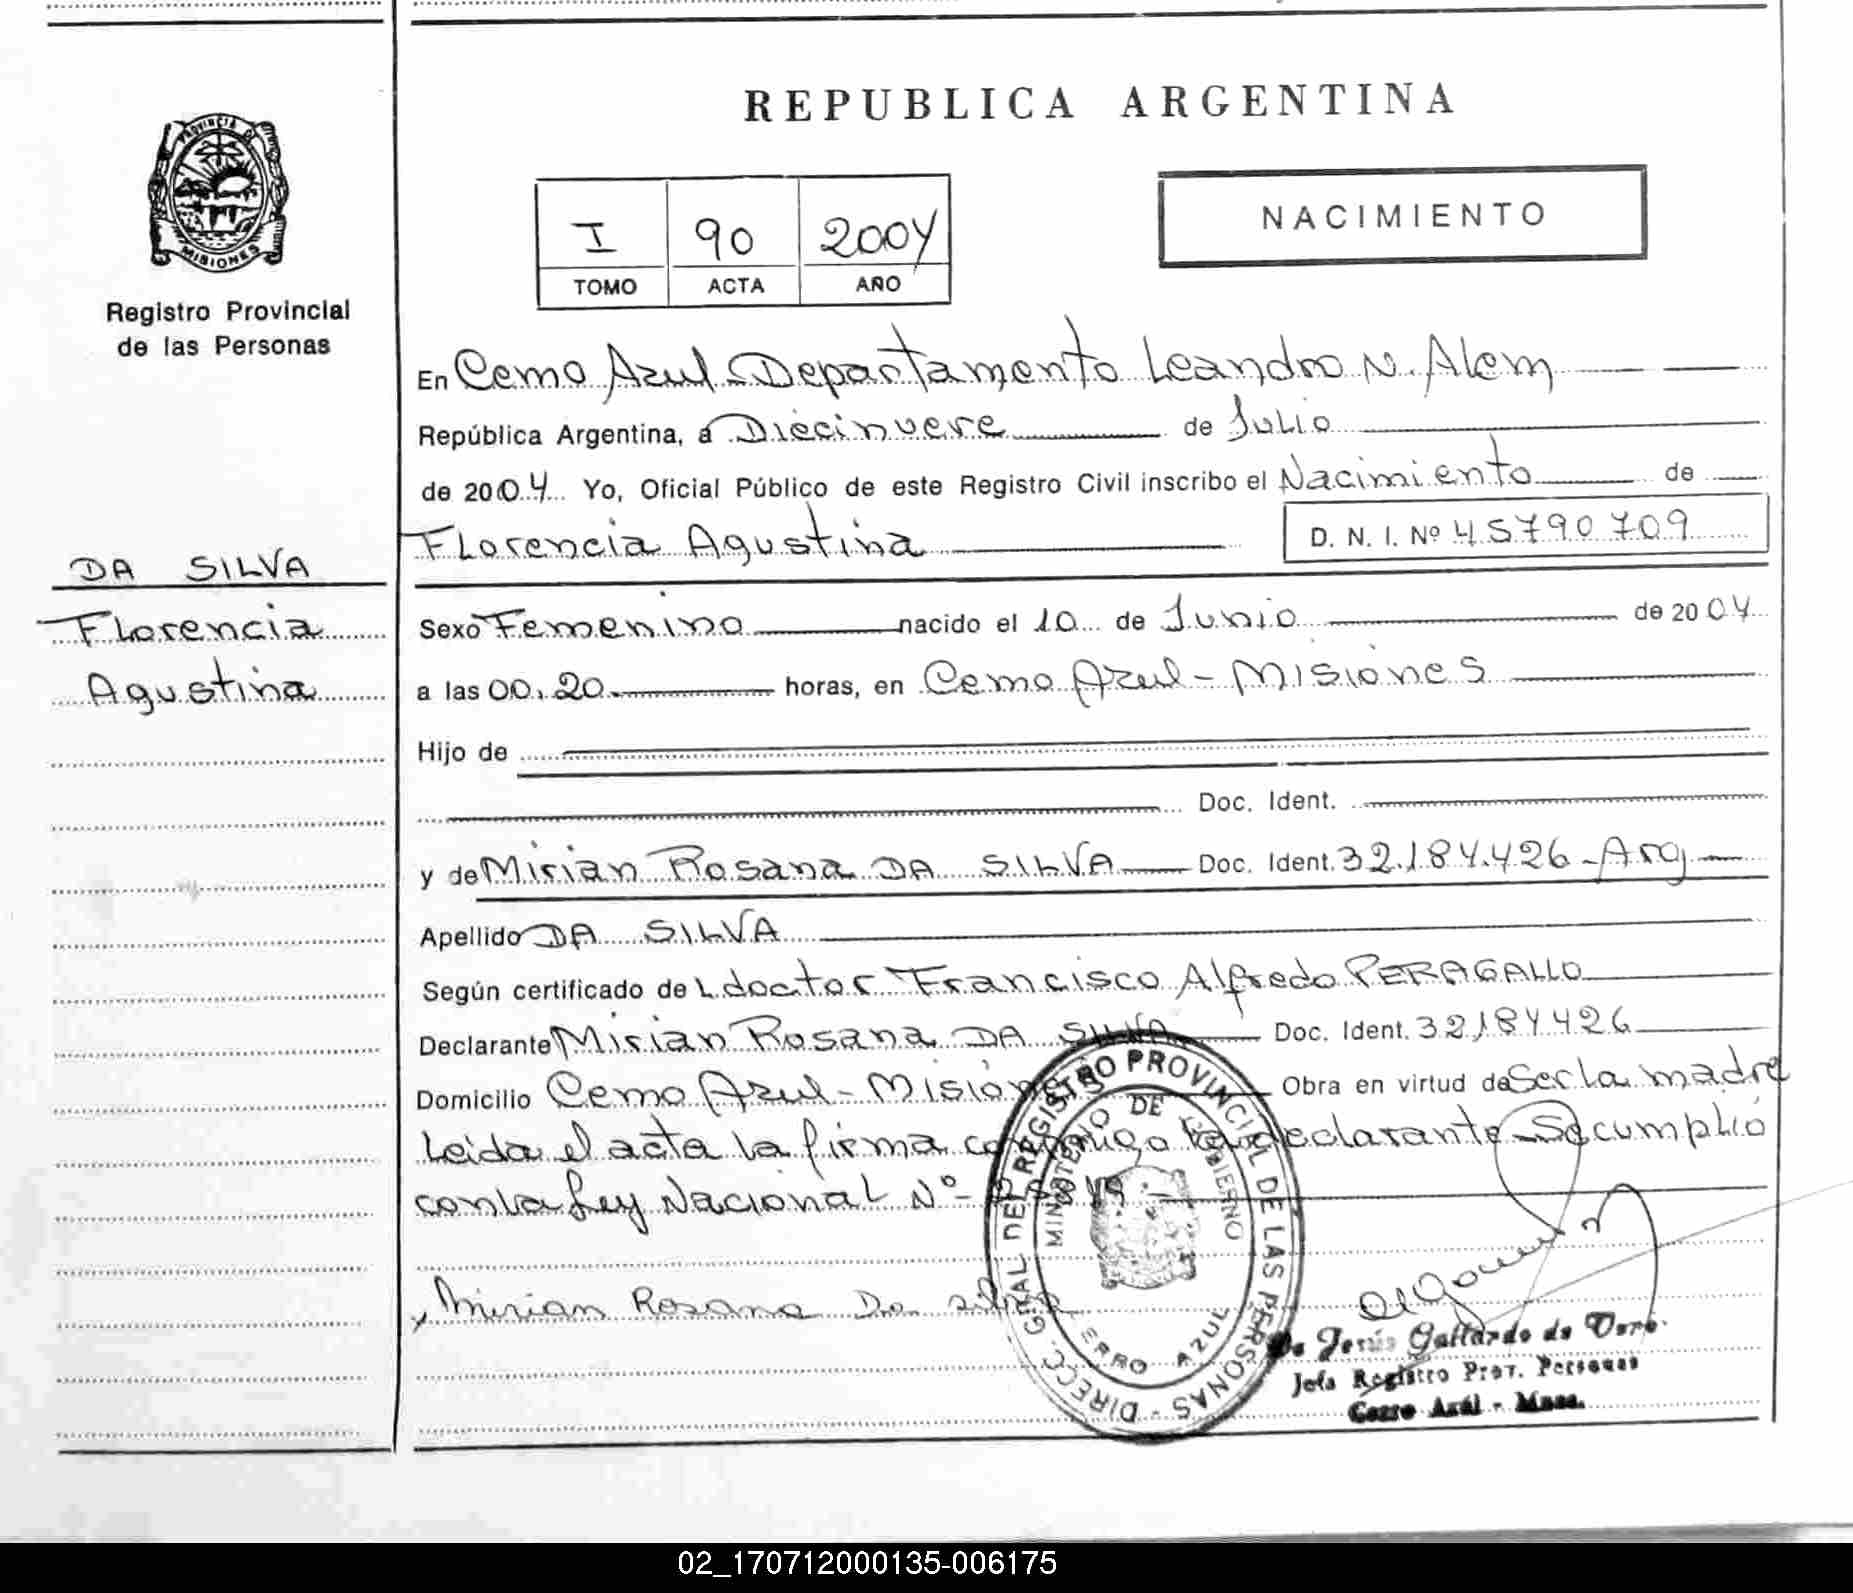 PROVINCIA DE
MISIONES
Registro Provincial
de las Personas
DA SILVA
Florencia
Agustina
REPUBLICA ARGENTINA
I 90 2004
TOMO ACTA AÑO
NACIMIENTO
En Cerro Azul - Departamento Leandro N. Alem
República Argentina, a Diecinueve de Julio
de 2004 Yo, Oficial Público de este Registro Civil inscribo el Nacimiento de
Florencia Agustina D. N. I. Nº 45790709
Sexo Femenino nacido el 10 de Junio de 2004
a las 00,20 horas, en Cerro Azul - Misiones
Hijo de
Doc. Ident.
y de Mirian Rosana DA SILVA Doc. Ident. 32.184.426 - Arg
Apellido DA SILVA
Según certificado del doctor Francisco Alfredo PERAGALLO
Declarante Mirian Rosana DA SILVA Doc. Ident. 32184426
Domicilio Cerro Azul - Misiones Obra en virtud de Ser la madre
Leida el acta la firma conmigo la declarante - Se cumplió
con la Ley Nacional Nº
Mirian Rosana Da silva
DIRECC. GRAL DEL REGISTRO PROVINCIAL DE LAS PERSONAS -
MINISTERIO DE GOBIERNO
CERRO AZUL
de Jesús Gallardo de
Jefa Registro Prov. Personas
Cerro Azúl - Mnes.
02_170712000135-006175